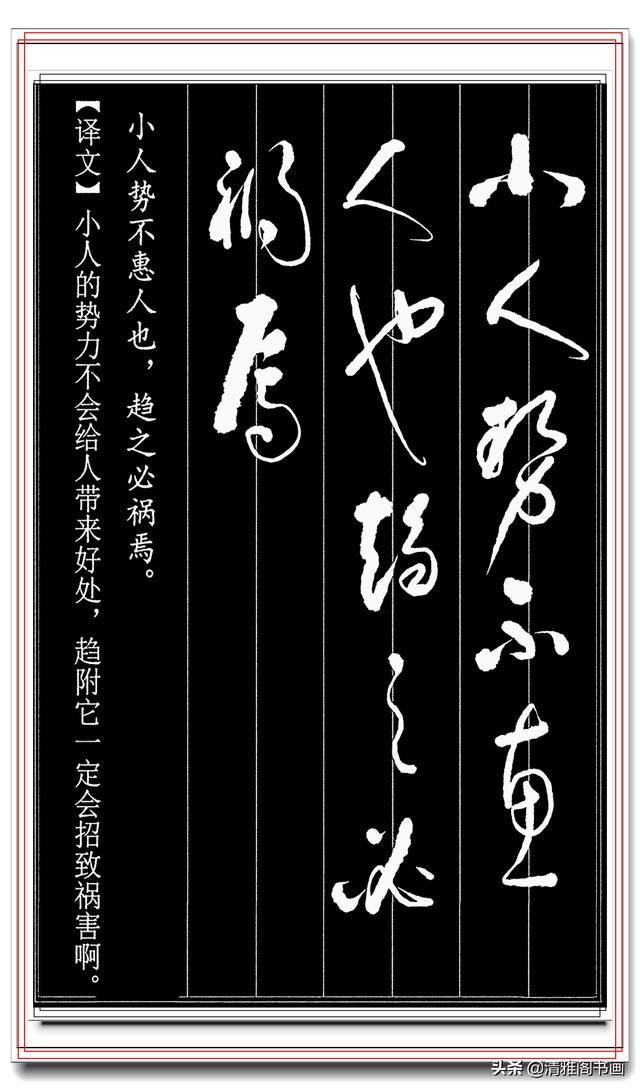 小人势不惠
人也趋之必
祸焉
小人势不惠人也，趋之必祸焉。
【译文】小人的势力不会给人带来好处，趋附它一定会招致祸害啊。
头条@清雅阁书画